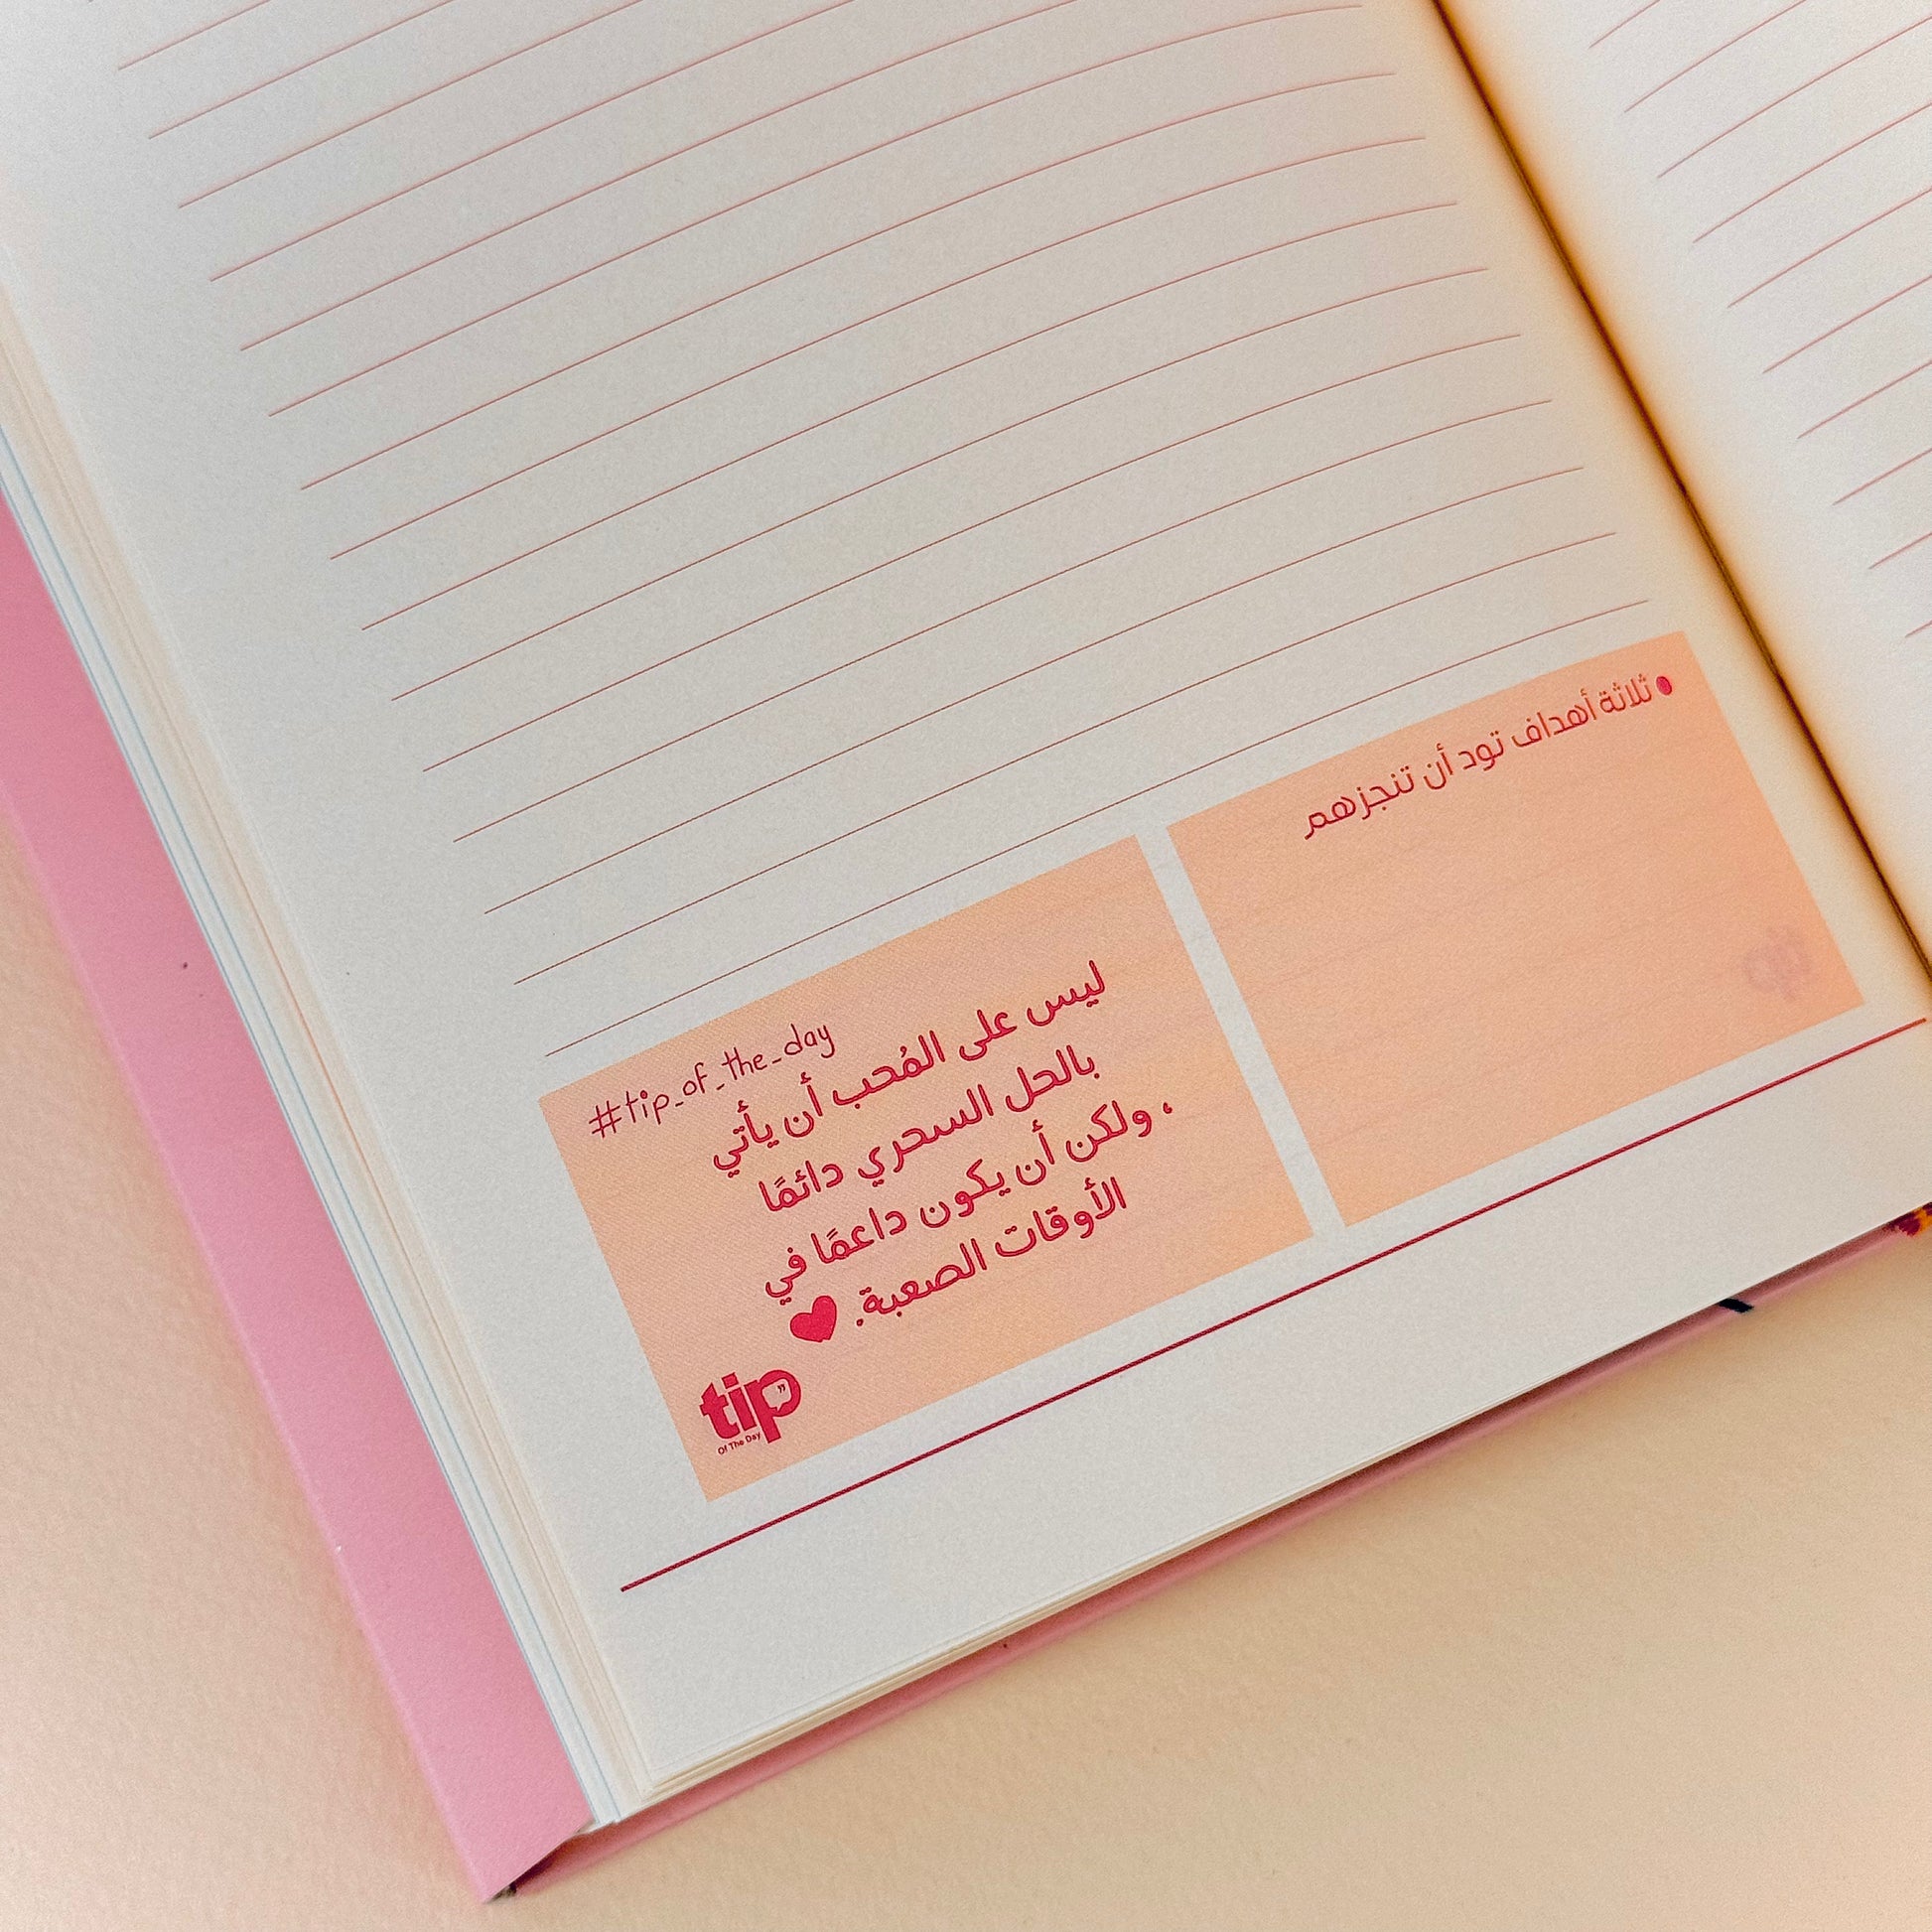 • ثلاثة أهداف تود أن تنجزهم
#tip_of_the_day
ليس على المُحب أن يأتي
بالحل السحري دائمًا
، ولكن أن يكون داعمًا في
الأوقات الصعبة. ♥
tip
Of The Day